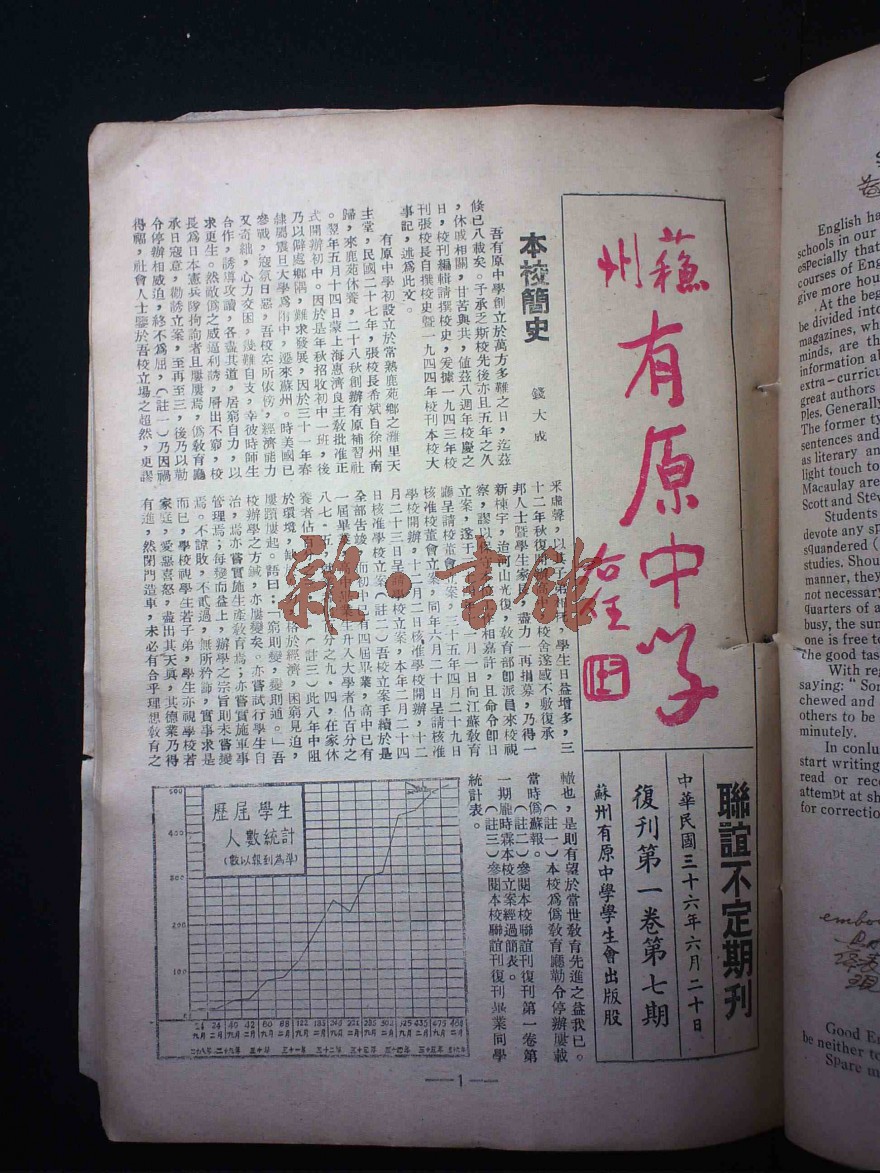 蘇州
有原中学
右任
聯誼不定期刊
中華民國三十六年六月二十日
復刊第一卷第七期
蘇州有原中學學生會出版股
本校簡史
錢大成
吾有原中學創立於萬方多難之日，迄茲
倏已八載矣。予承乏斯校先後亦且五年之久
，休戚相關，甘苦與共，值茲八週年校慶之
日，校刊編輯請撰校史，爰據一九四三年校
刊張校長自撰校史暨一九四四年校刊本校大
事記，述爲此文。
有原中學初設立於常熟鹿苑鄉之灘里天
主堂，民國二十七年，張校長希斌自徐州南
歸，來鹿苑休養，二十八秋創辦有原補習社
。翌年五月十四日蒙上海惠濟良主敎批准正
式開辦初中。因於是年秋招收初中一班，後
乃以僻處鄉隅，難求發展，因於三十一年春
隸屬震旦大學爲附中，遷來蘇州。時美國已
參戰，寇氛日惡，吾校空所依傍，經濟能力
又奇絀，心力交困，幾難自支，幸彼時師生
合作，誘導攻讀，各盡其道，居窮自力，以
求更生。然敵僞之威逼利誘，層出不窮，校
長爲日本憲兵隊拘詢者且屢屢焉，僞敎育廳
承日寇意，勸誘立案，至再至三，後乃以勒
令停辦相威迫，終不爲屈，（註一）乃因禍
得福，社會人士鑒於吾校立場之超然，更謬
釆虛聲，以其子弟
學生日益增多，三
十二年秋復開
校舍遂感不敷復承
邦人士暨學生家長，盡力一再捐募，乃得一
新棟宇，迨河山光復，敎育部卽派員來校視
察，謬以
相嘉許，且命令卽日
立案，遂于
月一日向江蘇敎育
廳呈請校董會立案，三十五年四月二十九日
核准校董會立案，同年六月二十日呈請核准
學校開辦，十一月二日核准學校開辦，十二
月二十三日呈請學校立案，本年二月二十四
日核准學校立案（註二）吾校立案手續於是
全部告竣，而初中已有四屆畢業，高中已有
一屆畢業，
升入大學者佔百分之
八七．五。
百分之九．四，在家休
養者佔百
（註三）此八年中阻
於環境，缺
格於經濟，困窮見迫，
屢躓屢起，語曰：「窮則變，變則通。」吾
校辦學之方鍼，亦屢變矣。亦嘗試行學生自
治，焉亦嘗實施生產敎育焉；亦嘗實施軍事
管理焉；每變而益上，辦學之宗旨則未嘗變
焉。不諒敗，不貳過，無所矜飾，實事求是
而已，學校視學生若子弟，學生亦視學校若
家庭，愛惡喜怒，盡出其天眞，其德業乃得
有進，然閉門造車，未必有合乎理想敎育之
轍也，是則有望於當世敎育先進之益我已。
（註一）本校爲僞敎育廳勒令停辦屢載
當時僞蘇報。
（註二）參閱本校聯誼刊復刊第一卷第
一期龐時霖本校立案經過簡表。
（註三）參閱本校聯誼刊復刊畢業同學
統計表。
歷屆學生
人數統計
(數以報到為準)
500
400
300
200
100
— 1 —
雜·書館
English ha
schools in our
especially that
courses of Eng
give more hou
At the beg
be divided into
magazines, wh
minds, are th
information al
extra-curricu
great authors
ples. Generally
The former ty
sentences and
as literary an
light touch to
Macaulay are
Scott and Stev
Students
devote any sp
squandered (
studies. Shou
manner, they
not necessary
quarters of a
busy, the sum
one is free to
the good tas
With reg
saying: "Son
chewed and
others to be
minutely.
In conlu
start writing
read or reco
attempt at sh
for correctio
Good En
be neither to
Spare m